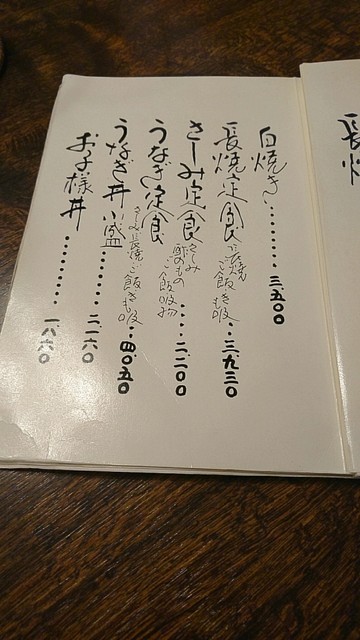 長焼
白焼き………三、五〇〇
長焼定食 長焼 ご飯 きも吸…三、九三〇
さしみ定食 さしみ 酢のもの ご飯 吸物…二、二〇〇
うなぎ定食 さしみ 長焼 ご飯 きも吸…四、〇五〇
うなぎ丼 小盛………二、二六〇
お子様丼………一、八六〇